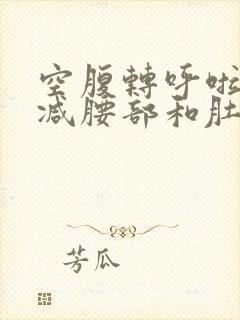 空腹轉呼啦
减腰部和肚
芳瓜